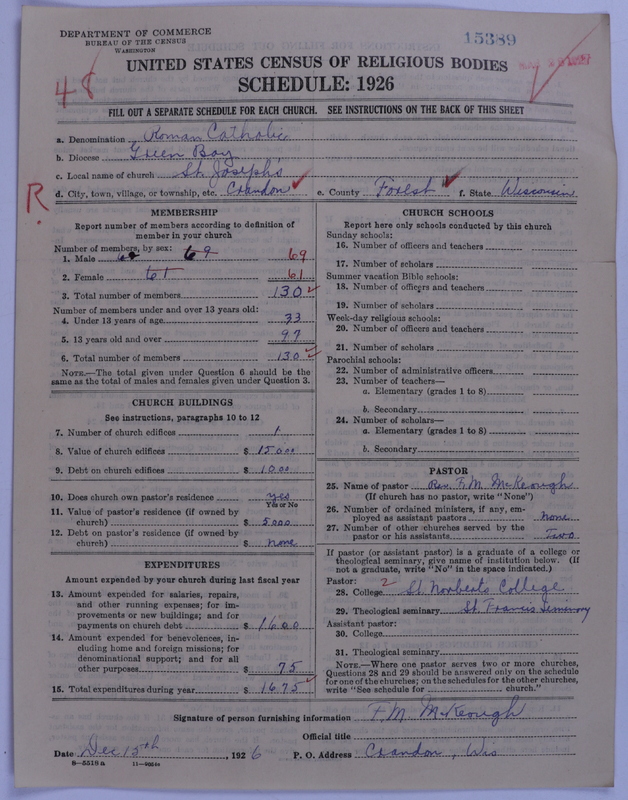 DEPARTMENT OF COMMERCE
BUREAU OF THE CENSUS
WASHINGTON
15389
48
UNITED STATES CENSUS OF RELIGIOUS BODIES
SCHEDULE: 1926
FILL OUT A SEPARATE SCHEDULE FOR EACH CHURCH. SEE INSTRUCTIONS ON THE BACK OF THIS SHEET
a. Denomination Roman Catholic
b. Diocese Green Bay
c. Local name of church St. Joseph's
R.
d. City, town, village, or township, etc. Crandon e. County Forest f. State Wisconsin
MEMBERSHIP
Report number of members according to definition of
member in your church
Number of members, by sex:
1. Male 69 69
2. Female 61 61
3. Total number of members 130
Number of members under and over 13 years old:
4. Under 13 years of age 33
5. 13 years old and over 97
6. Total number of members 130
NOTE.—The total given under Question 6 should be the
same as the total of males and females given under Question 3.
CHURCH BUILDINGS
See instructions, paragraphs 10 to 12
7. Number of church edifices 1
8. Value of church edifices $ 15000
9. Debt on church edifices $ 1000
10. Does church own pastor's residence yes
Yes or No
11. Value of pastor's residence (if owned by
church) $ 5000
12. Debt on pastor's residence (if owned by
church) $ none
EXPENDITURES
Amount expended by your church during last fiscal year
13. Amount expended for salaries, repairs,
and other running expenses; for im-
provements or new buildings; and for
payments on church debt $ 1600
14. Amount expended for benevolences, in-
cluding home and foreign missions; for
denominational support; and for all
other purposes $ 75
15. Total expenditures during year $ 1675
CHURCH SCHOOLS
Report here only schools conducted by this church
Sunday schools:
16. Number of officers and teachers
17. Number of scholars
Summer vacation Bible schools:
18. Number of officers and teachers
19. Number of scholars
Week-day religious schools:
20. Number of officers and teachers
21. Number of scholars
Parochial schools:
22. Number of administrative officers
23. Number of teachers—
a. Elementary (grades 1 to 8)
b. Secondary
24. Number of scholars—
a. Elementary (grades 1 to 8)
b. Secondary
PASTOR
25. Name of pastor Rev. F.M. McKeough
(If church has no pastor, write "None")
26. Number of ordained ministers, if any, em-
ployed as assistant pastors none
27. Number of other churches served by the
pastor or his assistants Two
If pastor (or assistant pastor) is a graduate of a college or
theological seminary, give name of institution below. (If
not a graduate, write "No" in the space indicated.)
Pastor: 2
28. College St. Norberts College
29. Theological seminary St. Francis Seminary
Assistant pastor:
30. College
31. Theological seminary
NOTE.—Where one pastor serves two or more churches,
Questions 28 and 29 should be answered only on the schedule
for one of the churches; on the schedules for the other churches,
write "See schedule for church."
Signature of person furnishing information F.M. McKeough
Official title
Date Dec 15th, 1926 P. O. Address Crandon, Wis
8—5518 a